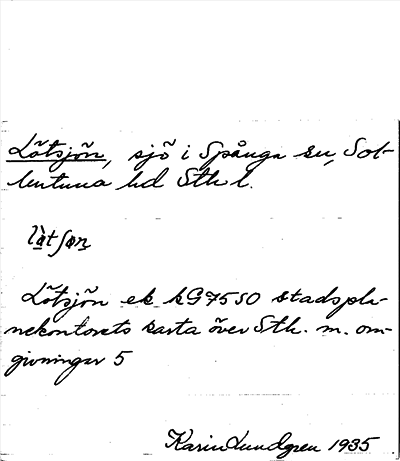 Lötsjön, sjö i Spånga sn, Sol-
lentuna hd Sthl.
Lötsjön ek kG7550 stadspla-
nekontorets karta över Sth. m. om-
givningar 5
Karin Lundgren 1935